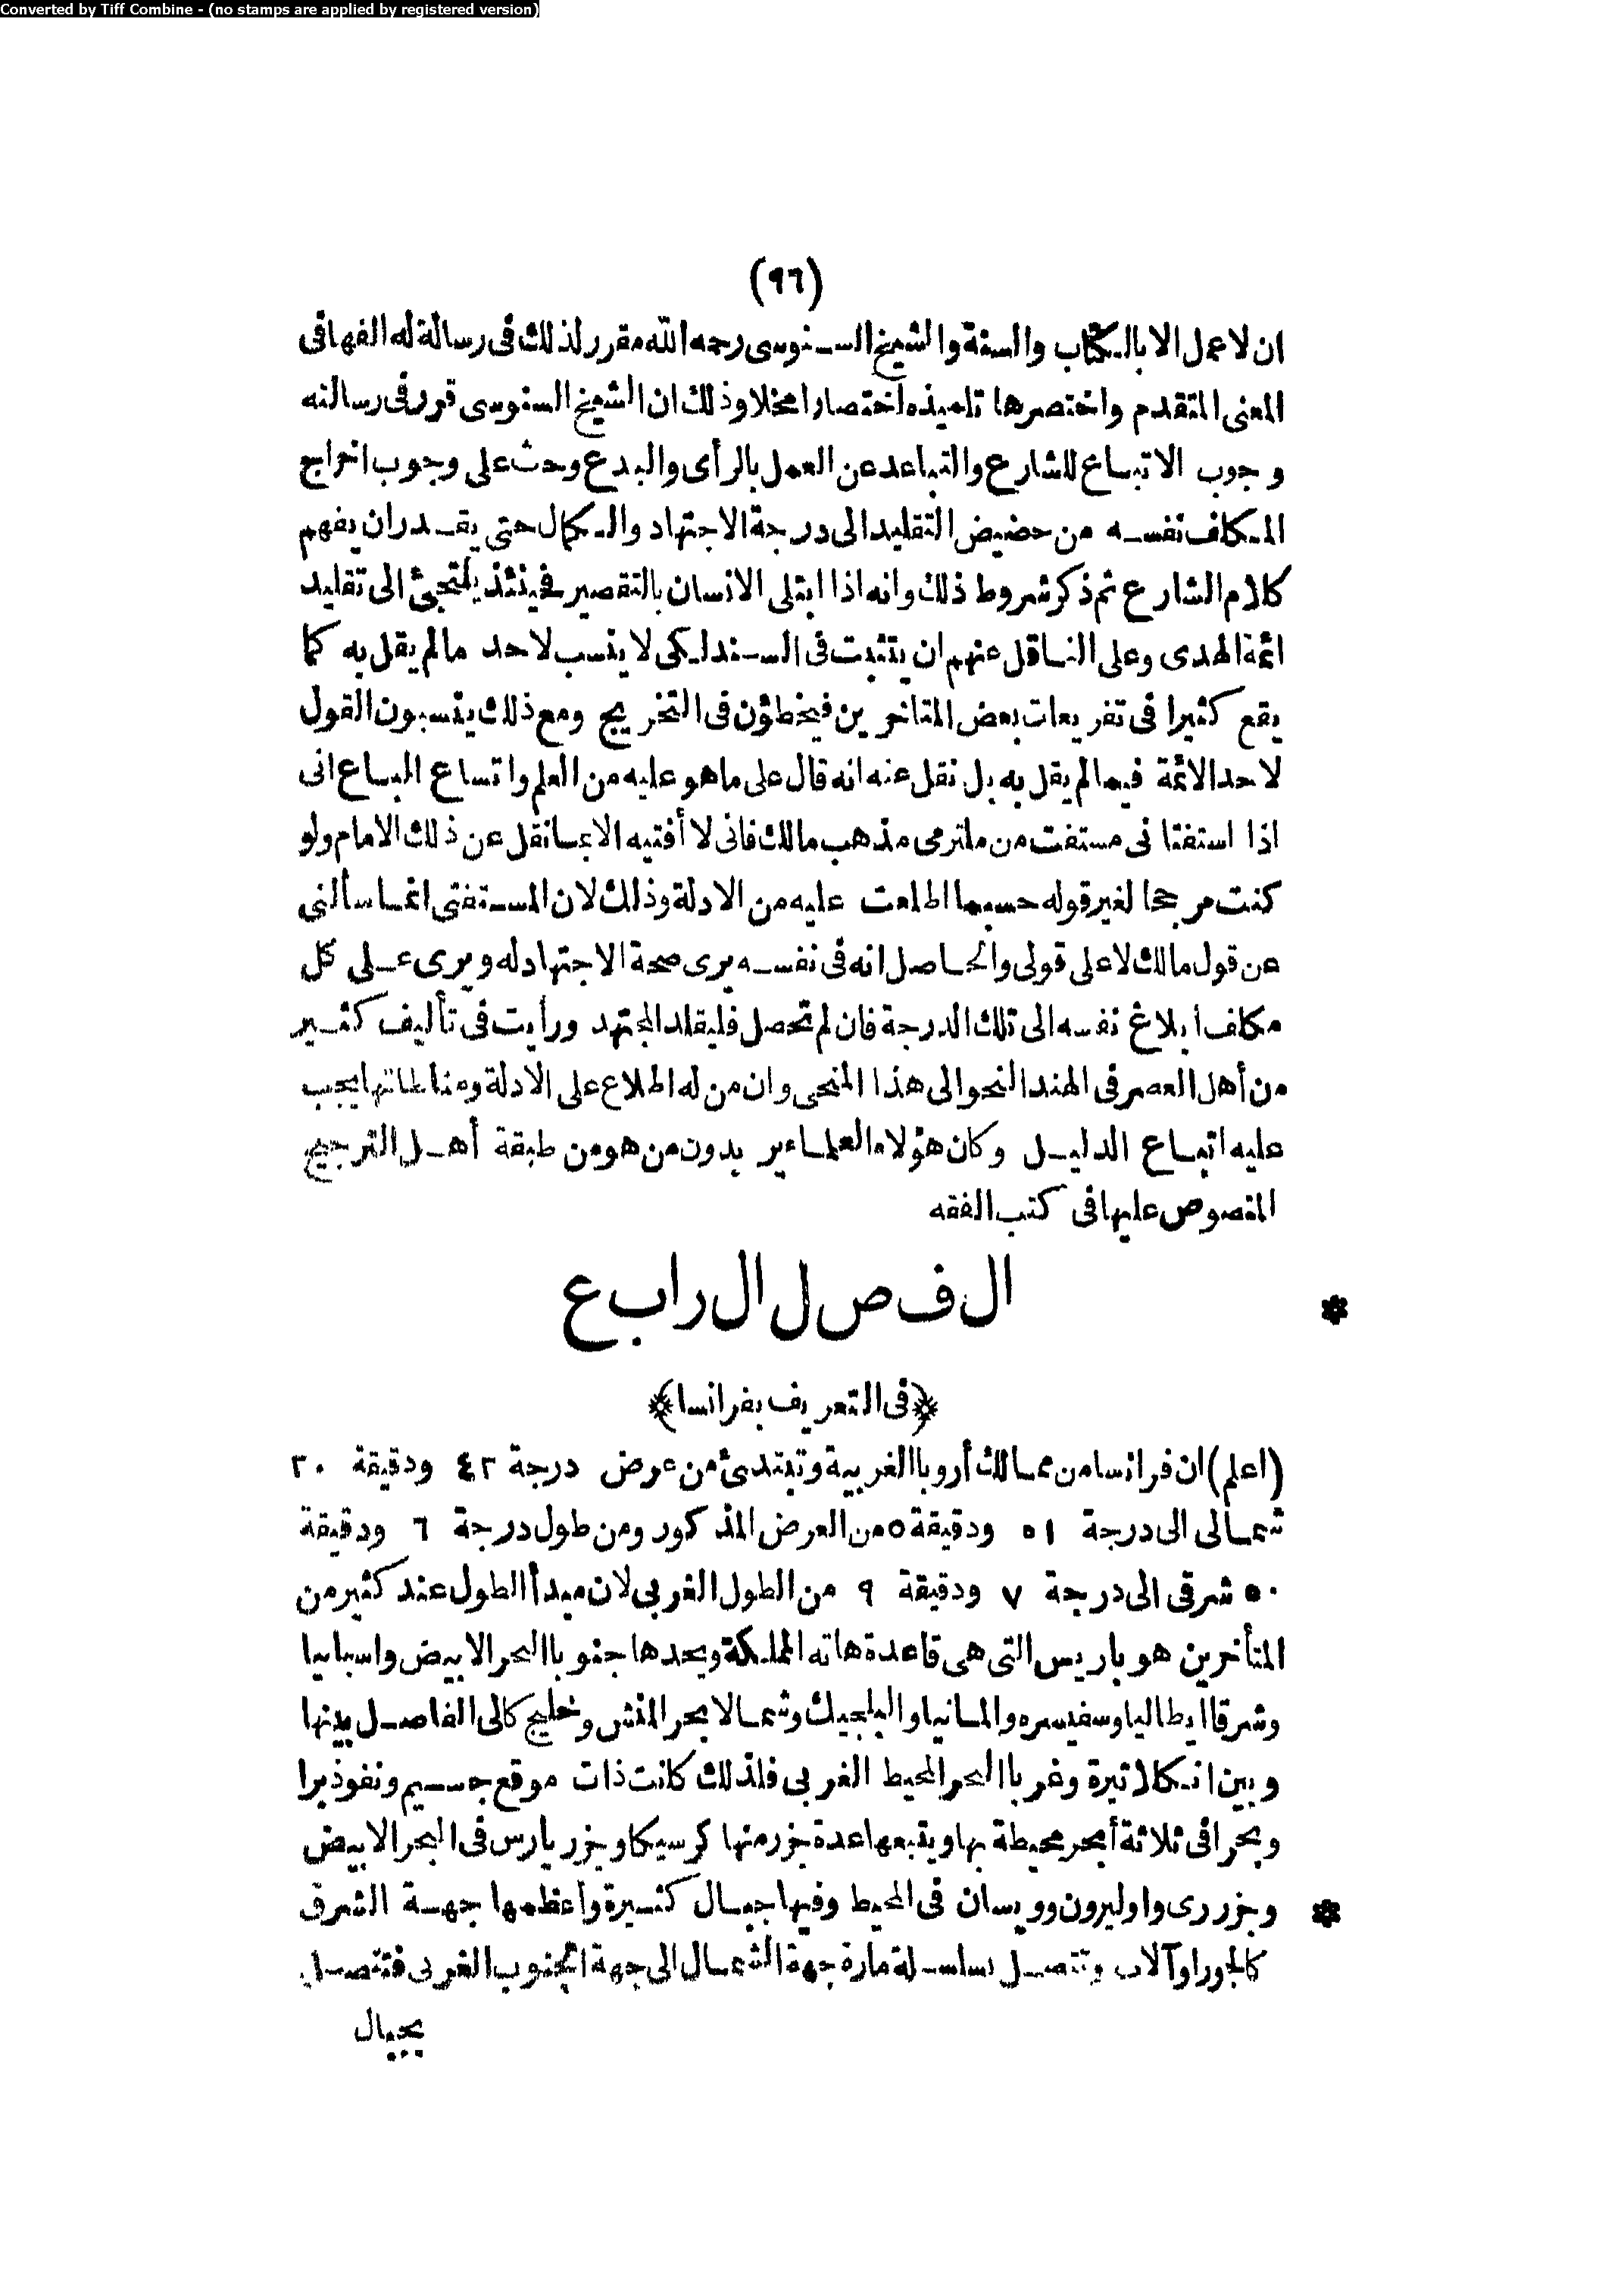 Converted by Tiff Combine - (no stamps are applied by registered version)
(٩٦)
ان لا عمل الا بالكتاب والسنة والشيخ السنوسى رحمه الله مقرر لذلك فى رسالة له الفها فى
المعنى المتقدم واختصرها تلميذه اختصارا مخلا وذلك ان الشيخ السنوسى قرر فى رسالته
وجوب الاتباع للشارع والتباعد عن العمل بالرأى والبدع وحث على وجوب اخراج
المكلف نفسه من حضيض التقليد الى درجة الاجتهاد والكمال حتى يقدر ان يفهم
كلام الشارع ثم ذكر شروط ذلك وانه اذا ابتلى الانسان بالتقصير فحينئذ يلتجئ الى تقليد
ائمة الهدى وعلى الناقل عنهم ان يتثبت فى السند لكى لا ينسب لاحد ما لم يقل به كما
يقع كثيرا فى تفريعات بعض المتاخرين فيخطؤن فى التخريج ومع ذلك ينسبون القول
لاحد الائمة فيما لم يقل به بل نقل عنه انه قال على ما هو عليه من العلم واتساع الباع انى
اذا استفتانى مستفت من ملتزمى مذهب مالك فانى لا أفتيه الا بما نقل عن ذلك الامام ولو
كنت مرجحا لغير قوله حسبما اطلعت عليه من الادلة وذلك لان المستفتى انما سألنى
عن قول مالك لا على قولى والحاصل انه فى نفسه يرى صحة الاجتهاد له ويرى على كل
مكلف ابلاغ نفسه الى تلك الدرجة فان لم تحصل فليقلد المجتهد ورأيت فى تأليف كثير
من أهل العصر فى الهند النحو الى هذا المنحى وان من له اطلاع على الادلة ومناطاتها يجب
عليه اتباع الدليل وكان هؤلاء العلماء يريدون من هو من طبقة أهل الترجيح
المنصوص عليها فى كتب الفقه
الفصل الرابع
*
﴿فى التعريف بفرانسا﴾
(اعلم) ان فرانسا من ممالك أروبا الغربية وتبتدئ من عرض درجة ٤٢ ودقيقة ٢٠
شمالى الى درجة ٥١ ودقيقة ٥ من العرض المذكور ومن طول درجة ٦ ودقيقة
٥٠ شرقى الى درجة ٧ ودقيقة ٩ من الطول الغربى لان مبدأ الطول عند كثير من
المتأخرين هو باريس التى هى قاعدة هاته المملكة ويحدها جنوبا البحر الابيض واسبانيا
وشرقا ايطاليا وسفيسره والمانيا والبلجيك وشمالا بحر المنش وخليج كالى الفاصل بينها
وبين انكلاتيرة وغربا البحر المحيط الغربى فلذلك كانت ذات موقع جسيم ونفوذ برا
وبحرا فى ثلاثة أبحر محيطة بها ويتبعها عدة جزر منها كرسيكا وجزر يارس فى البحر الابيض
وجزر رى واوليرون وويسان فى المحيط وفيها جبال كثيرة وأعظمها جهة الشرق
*
كالجورا وآلاب وتتصل بسلسلة مارة جهة الشمال الى جهة الجنوب الغربى فتتصل
بجبال